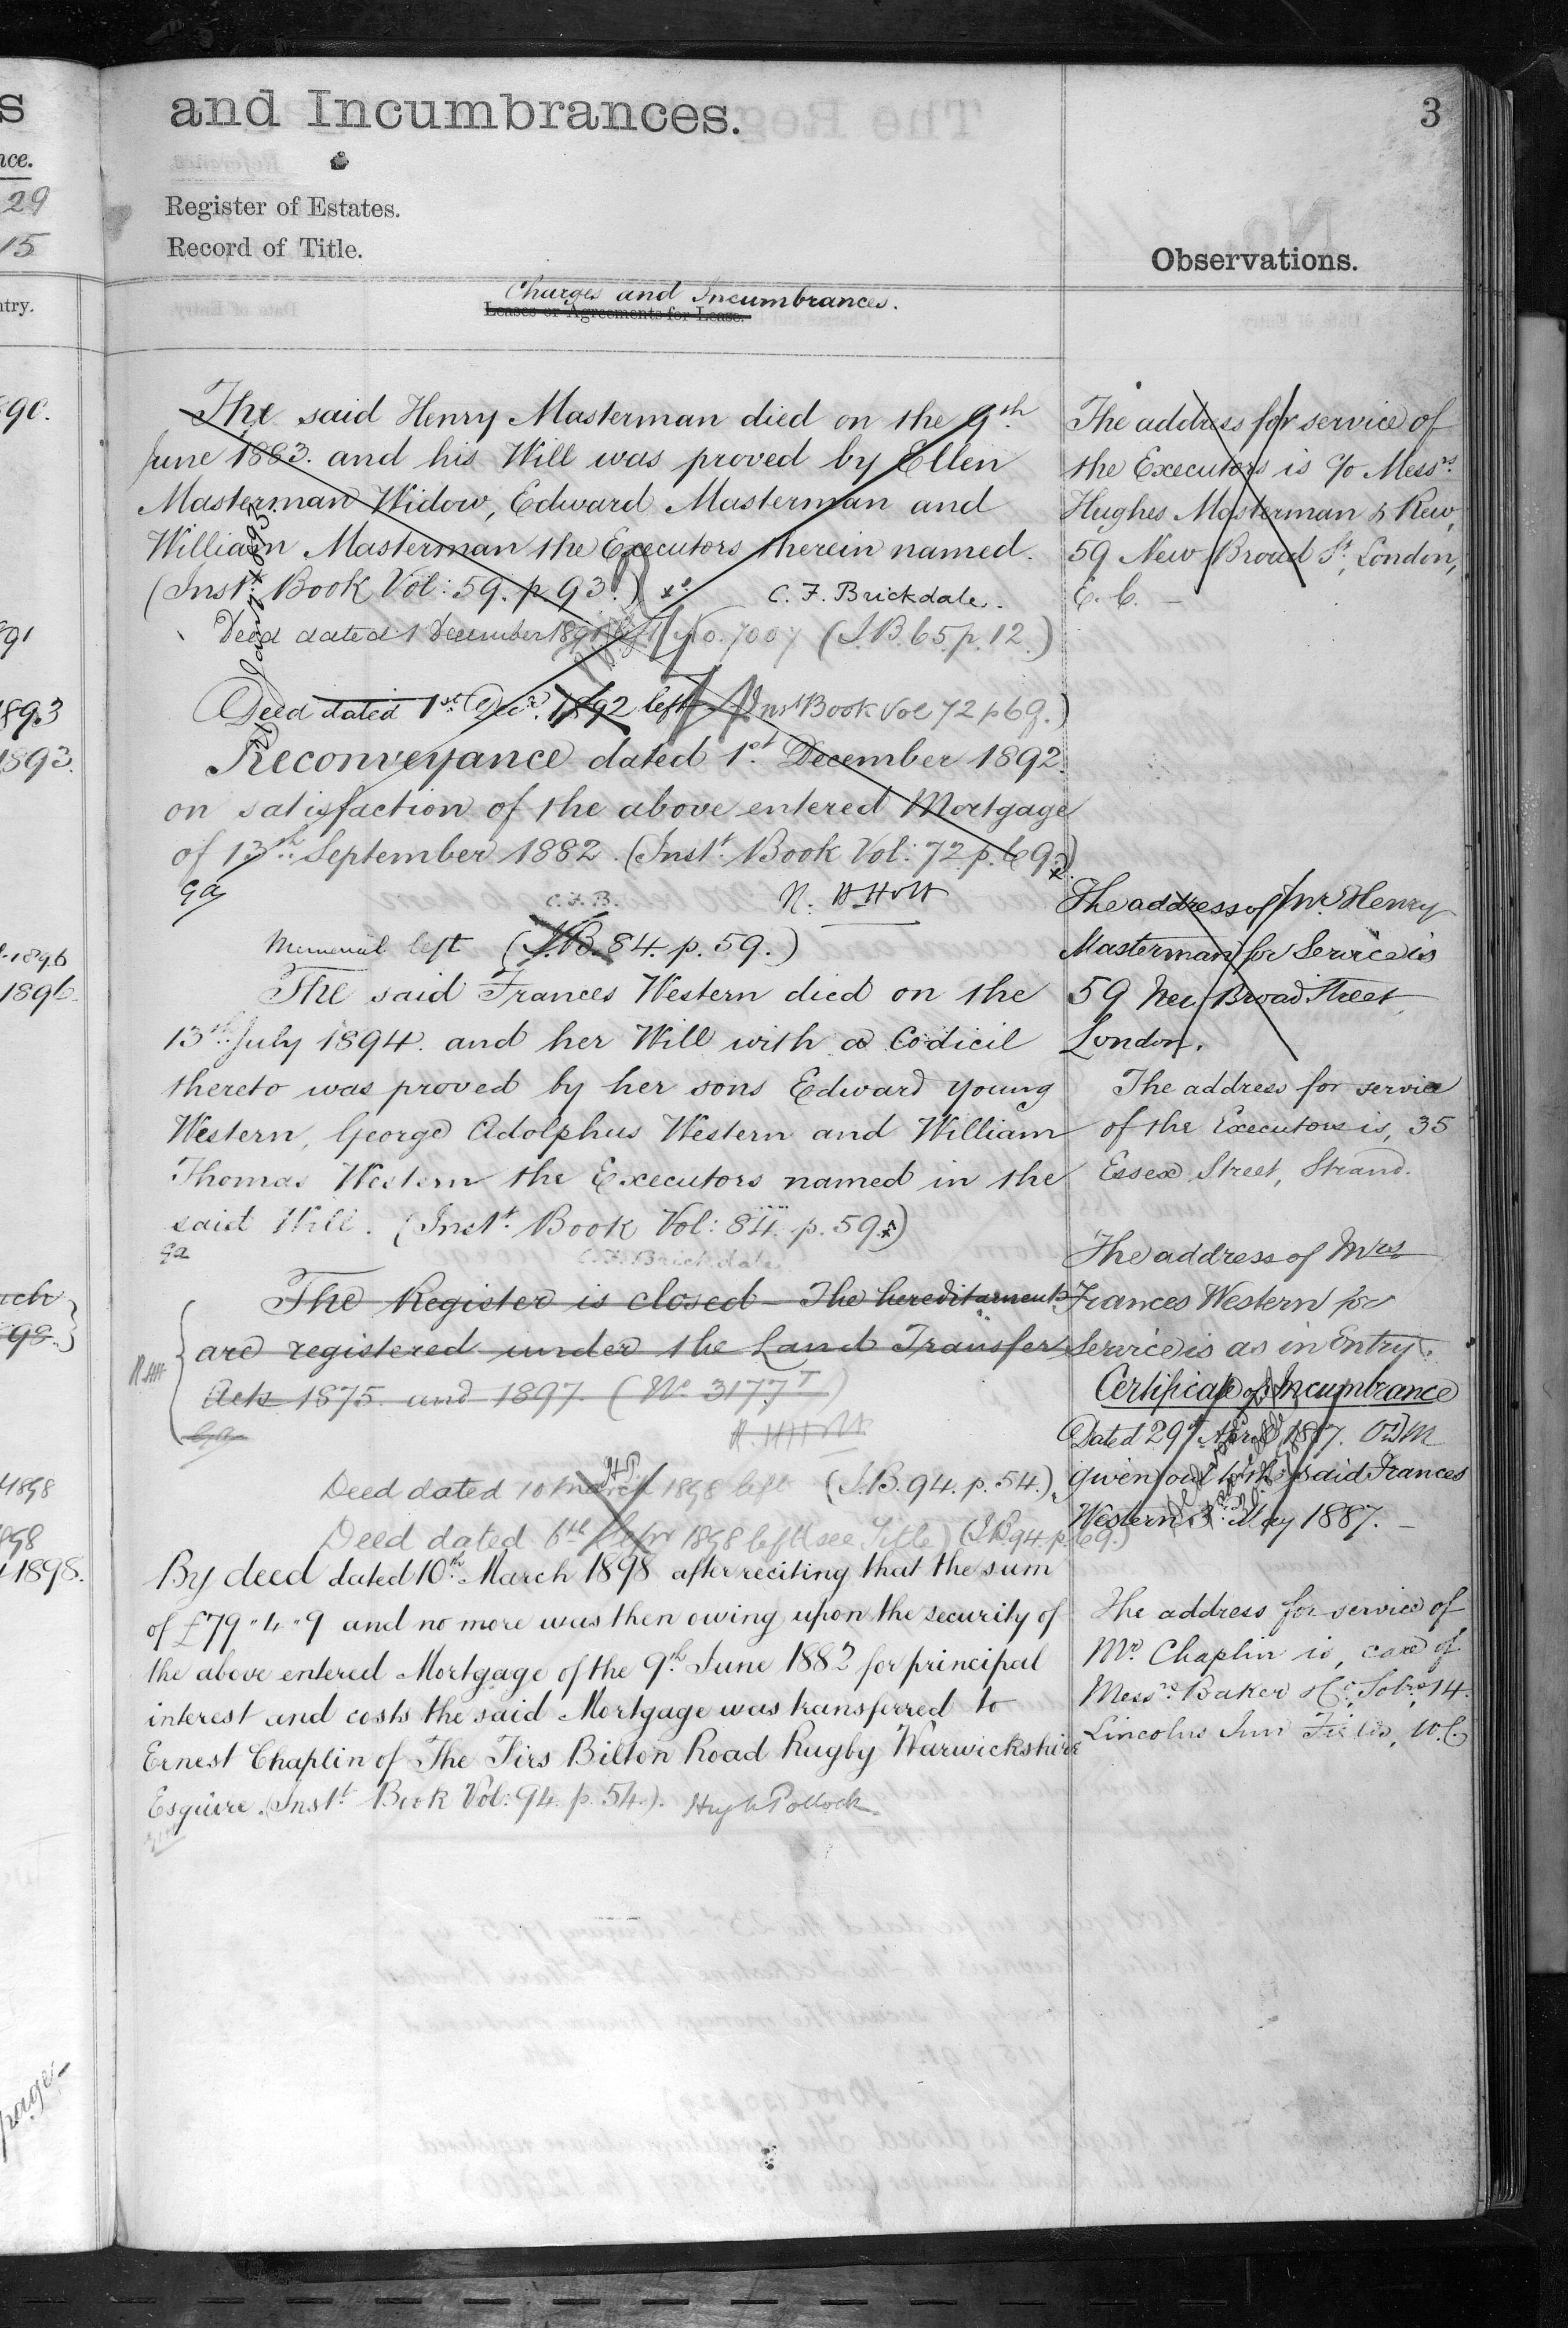 s
nce.
29
15
ntry.
890.
891
1893
1893.
1896
1896.
98.
1898
1898
1898.
page
and Incumbrances.
3
Register of Estates.
Record of Title.
Charges and Incumbrances.
Leases or Agreements for Lease.
The said Henry Masterman died on the 9th
June 1883. and his Will was proved by Ellen
Masterman Widow, Edward Masterman and
William Masterman the Executors therein named.
(Inst: Book Vol: 59. p. 93.)
C. F. Brickdale.
Deed dated 1 December 1891 left No. 7007 (I.B. 65. p. 12.)
Deed dated 1st Decr. 1892 left (Inst Book Vol 72 p 69.)
Reconveyance dated 1st December 1892.
on satisfaction of the above entered Mortgage
of 13th September 1882. (Inst. Book Vol: 72. p. 69.)
ga
C.F.B.
Memorial left (I.B. 84. p. 59.)
The said Frances Western died on the
13th July 1894. and her Will with a Codicil
thereto was proved by her sons Edward Young
Western, George Adolphus Western and William
Thomas Western the Executors named in the
said Will. (Instt. Book Vol: 84. p. 59.)
ga
C.F. Brickdale
The Register is closed – The hereditaments
are registered under the Land Transfer
Acts 1875 and 1897. (No 3177T)
Deed dated 10 March 1898 left (I.B. 94. p. 54.)
HP
Deed dated 6th 1898 left (see Title) (I.B. 94. p. 69.)
By deed dated 10th March 1898 after reciting that the sum
of £79 " 4 " 9 and no more was then owing upon the security of
the above entered Mortgage of the 9th June 1882 for principal
interest and costs the said Mortgage was transferred to
Ernest Chaplin of The Firs Bilton Road Rugby Warwickshire
Esquire. (Instt Book Vol: 94. p. 54.). Hugh Pollock
Observations.
The address for service of
the Executors is c/o Messrs
Hughes Masterman & Rew,
59 New Broad St, London,
E.C. –
The address of Mr. Henry
Masterman for Service is
59 New Broad Street,
London.
The address for service
of the Executors is, 35
Essex Street, Strand.
The address of Mrs
Frances Western for
Service is as in Entry.
Certificate of Incumbrance
Dated 29th April 1887.
given out to the said Frances
Western 3rd May 1887. –
The address for service of
Mr. Chaplin is, care of
Messrs Baker &c; Solrs 14.
Lincolns Inn Fields, W.C.